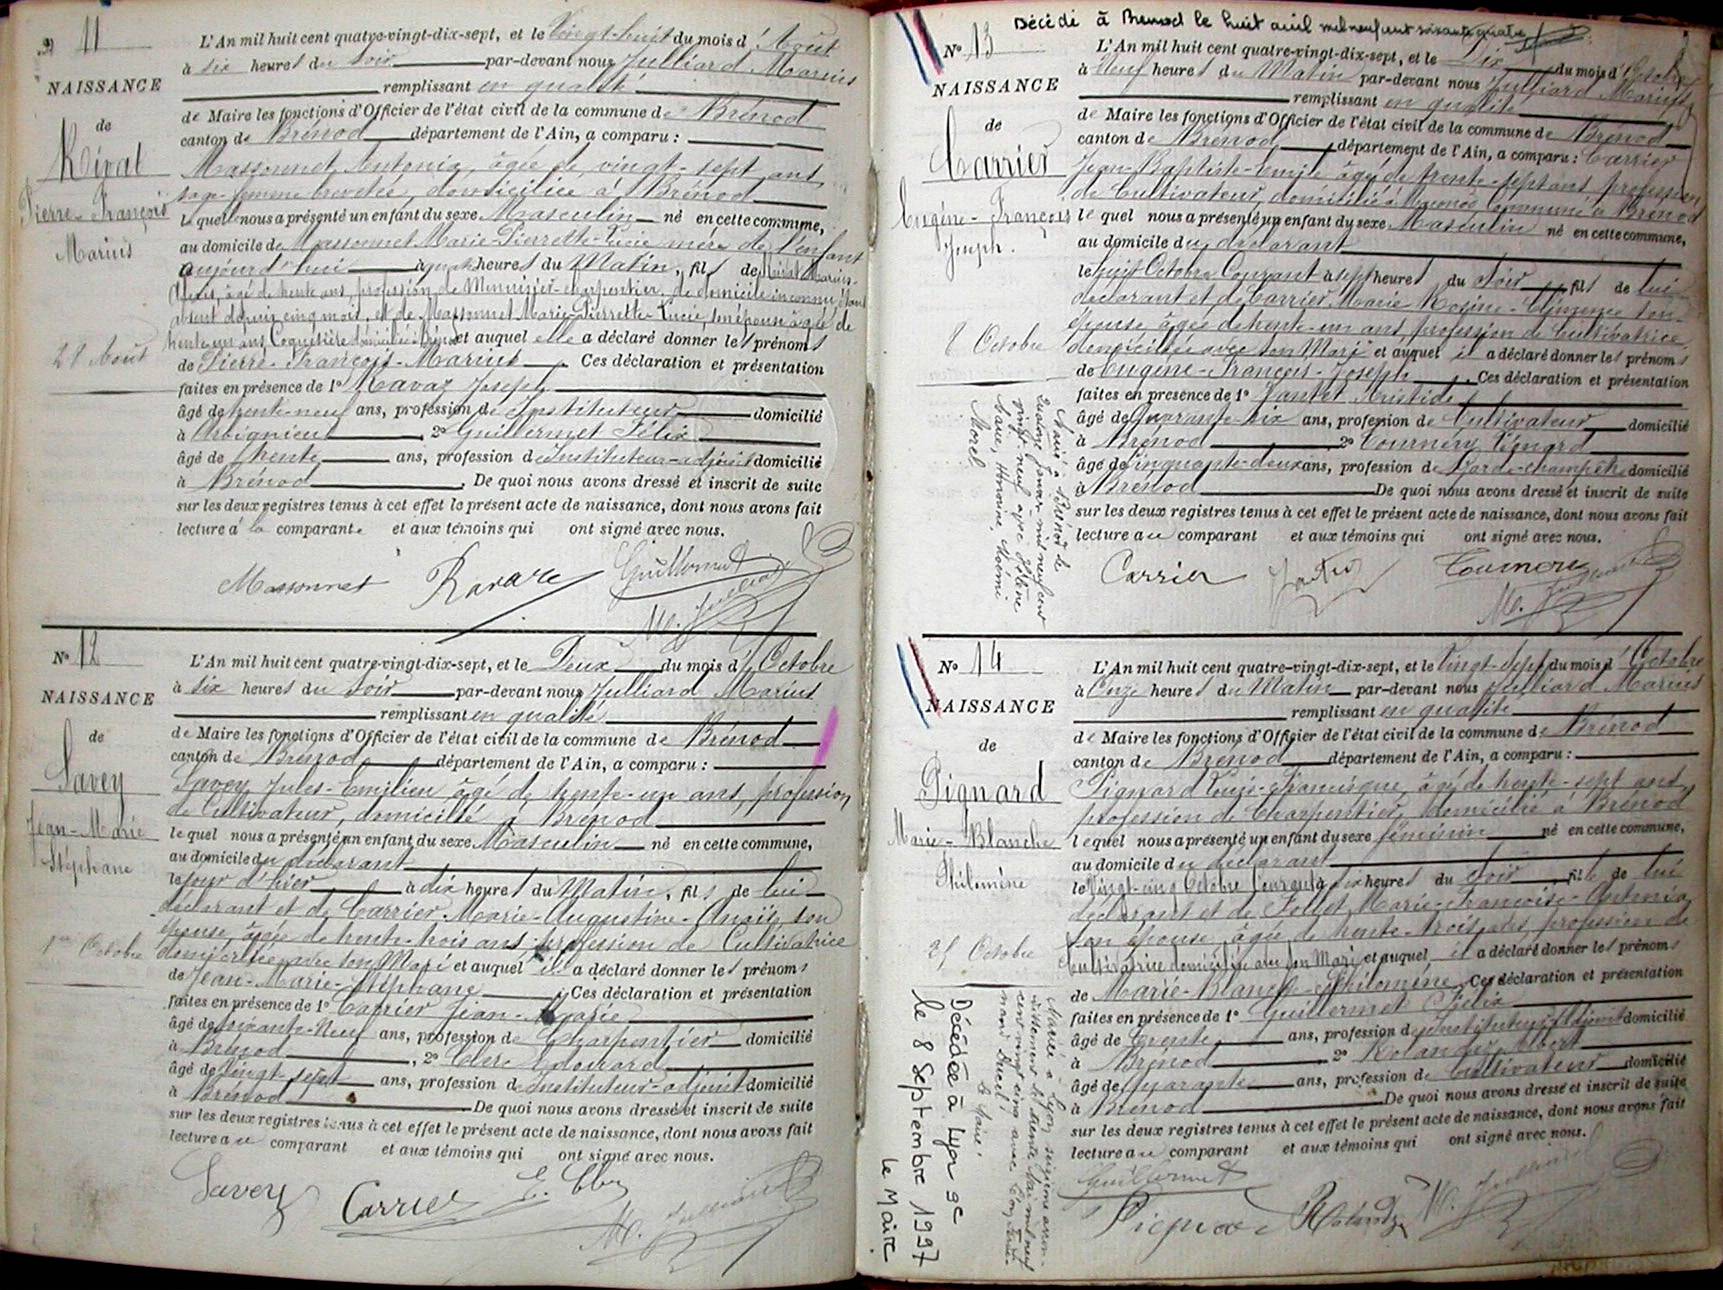 N° 11
NAISSANCE
de
Rival
Pierre-François
Marius
28 Août
L'An mil huit cent quatre-vingt-dix-sept, et le Vingt-huit du mois d'Août
à six heures du soir par-devant nous Julliard Marius
remplissant en qualité
de Maire les fonctions d'Officier de l'état civil de la commune de Brénod
canton de Brénod département de l'Ain, a comparu :
Massonnet Antonia, âgée de vingt-sept ans
sage-femme brevetée, domiciliée à Brénod
lequel nous a présenté un enfant du sexe Masculin né en cette commune,
au domicile de Massonnet Marie-Pierrette-Lucie mère de l'enfant
aujourd'hui à quatre heures du Matin, fils de Rival Marius-
Alexis, âgé de trente ans, profession de Menuisier-charpentier, de domicile inconnu, étant
absent depuis cinq mois, et de Massonnet Marie-Pierrette-Lucie, son épouse âgée de
trente-un ans, Coquetière domiciliée à Brénod et auquel elle a déclaré donner les prénoms
de Pierre-François-Marius. Ces déclaration et présentation
faites en présence de 1° Ravaz Joseph
âgé de trente-neuf ans, profession de Instituteur domicilié
à Arvignieu, 2° Guillermet Félix
âgé de trente ans, profession de Instituteur-adjoint domicilié
à Brénod. De quoi nous avons dressé et inscrit de suite
sur les deux registres tenus à cet effet le présent acte de naissance, dont nous avons fait
lecture à la comparante et aux témoins qui ont signé avec nous.
Massonnet Ravaz Guillermet
M. Julliard
N° 12
NAISSANCE
de
Savey
Jean-Marie
Stéphane
1er Octobre
L'An mil huit cent quatre-vingt-dix-sept, et le Deux du mois d'Octobre
à six heures du soir par-devant nous Julliard Marius
remplissant en qualité
de Maire les fonctions d'Officier de l'état civil de la commune de Brénod
canton de Brénod département de l'Ain, a comparu :
Savey Jules-Emilien âgé de trente-un ans, profession
de Cultivateur, domicilié à Brénod
lequel nous a présenté un enfant du sexe Masculin né en cette commune,
au domicile du déclarant
le jour d'hier à dix heures du Matin, fils de lui
déclarant et de Carrier Marie-Augustine-Anaïs, son
épouse, âgée de trente-trois ans profession de Cultivatrice
domiciliée avec son Mari et auquel il a déclaré donner les prénoms
de Jean-Marie-Stéphane. Ces déclaration et présentation
faites en présence de 1° Carrier Jean-Marie
âgé de soixante-neuf ans, profession de Charpentier domicilié
à Brénod, 2° Clerc Edouard
âgé de vingt-sept ans, profession de Instituteur-adjoint domicilié
à Brénod De quoi nous avons dressé et inscrit de suite
sur les deux registres tenus à cet effet le présent acte de naissance, dont nous avons fait
lecture au comparant et aux témoins qui ont signé avec nous.
Savey Carrier E. Clerc
M. Julliard
Décédé à Brenod le huit avril mil neuf cent soixante quatre
N° 13
NAISSANCE
de
Carrier
Eugène-François
Joseph.
8 Octobre
Marié à Brénod le
quatorze janvier mil neuf cent
vingt-neuf avec
Marie, Noémi
Morel
L'An mil huit cent quatre-vingt-dix-sept, et le Dix du mois d'Octobre
à Neuf heures du Matin par-devant nous Julliard Marius
remplissant en qualité
de Maire les fonctions d'Officier de l'état civil de la commune de Brénod
canton de Brénod département de l'Ain, a comparu : Carrier
Jean-Baptiste-Emile âgé de trente-sept ans profession
de Cultivateur, domicilié à Macconod Commune de Brénod
lequel nous a présenté un enfant du sexe Masculin né en cette commune,
au domicile du déclarant
le huit Octobre Courant à sept heures du soir, fils de lui
déclarant et de Carrier Marie Rosine-Clémence son
épouse âgée de trente-un ans, profession de Cultivatrice
domiciliée avec son Mari et auquel il a déclaré donner les prénoms
de Eugène-François-Joseph. Ces déclaration et présentation
faites en présence de 1° Jantet Aristide
âgé de Quarante-six ans, profession de Cultivateur domicilié
à Brénod 2° Tournery Léonard
âgé de Cinquante-deux ans, profession de Garde-champêtre domicilié
à Brénod De quoi nous avons dressé et inscrit de suite
sur les deux registres tenus à cet effet le présent acte de naissance, dont nous avons fait
lecture au comparant et aux témoins qui ont signé avec nous.
Carrier Jantet Tournery
M. Julliard
N° 14
NAISSANCE
de
Pignard
Marie-Blanche
Philomène
25 Octobre
Mariée à Lyon seizième arron-
dissement le trente Mai mil neuf
cent vingt cinq avec
Le Maire,
Décédée à Lyon 9e
le 8 Septembre 1997
Le Maire
L'An mil huit cent quatre-vingt-dix-sept, et le Vingt-Sept du mois d'Octobre
à Onze heures du Matin par-devant nous Julliard Marius
remplissant en qualité
de Maire les fonctions d'Officier de l'état civil de la commune de Brénod
canton de Brénod département de l'Ain, a comparu :
Pignard Louis-Francisque, âgé de trente-sept ans
profession de Charpentier, domicilié à Brénod
lequel nous a présenté un enfant du sexe féminin né en cette commune,
au domicile du déclarant
le Vingt-cinq Octobre Courant à six heures du soir fille de lui
déclarant et de Follet Marie-Françoise-Antonia
son épouse, âgée de trente-trois ans, profession de
Cultivatrice domiciliée avec son Mari et auquel il a déclaré donner les prénoms
de Marie-Blanche-Philomène. Ces déclaration et présentation
faites en présence de 1° Guillermet Félix
âgé de trente ans, profession de Instituteur Adjoint domicilié
à Brénod 2° Rolandez Albert
âgé de Quarante ans, profession de Cultivateur domicilié
à Brénod De quoi nous avons dressé et inscrit de suite
sur les deux registres tenus à cet effet le présent acte de naissance, dont nous avons fait
lecture au comparant et aux témoins qui ont signé avec nous.
Guillermet
Pignard Rolandez M. Julliard